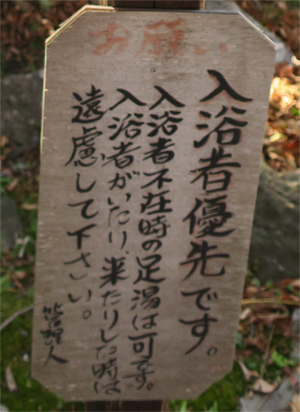 お願い
入浴者優先です。
入浴者不在時の足湯は可です。
入浴者がいたり、来たりした時は
遠慮して下さい。
管理人